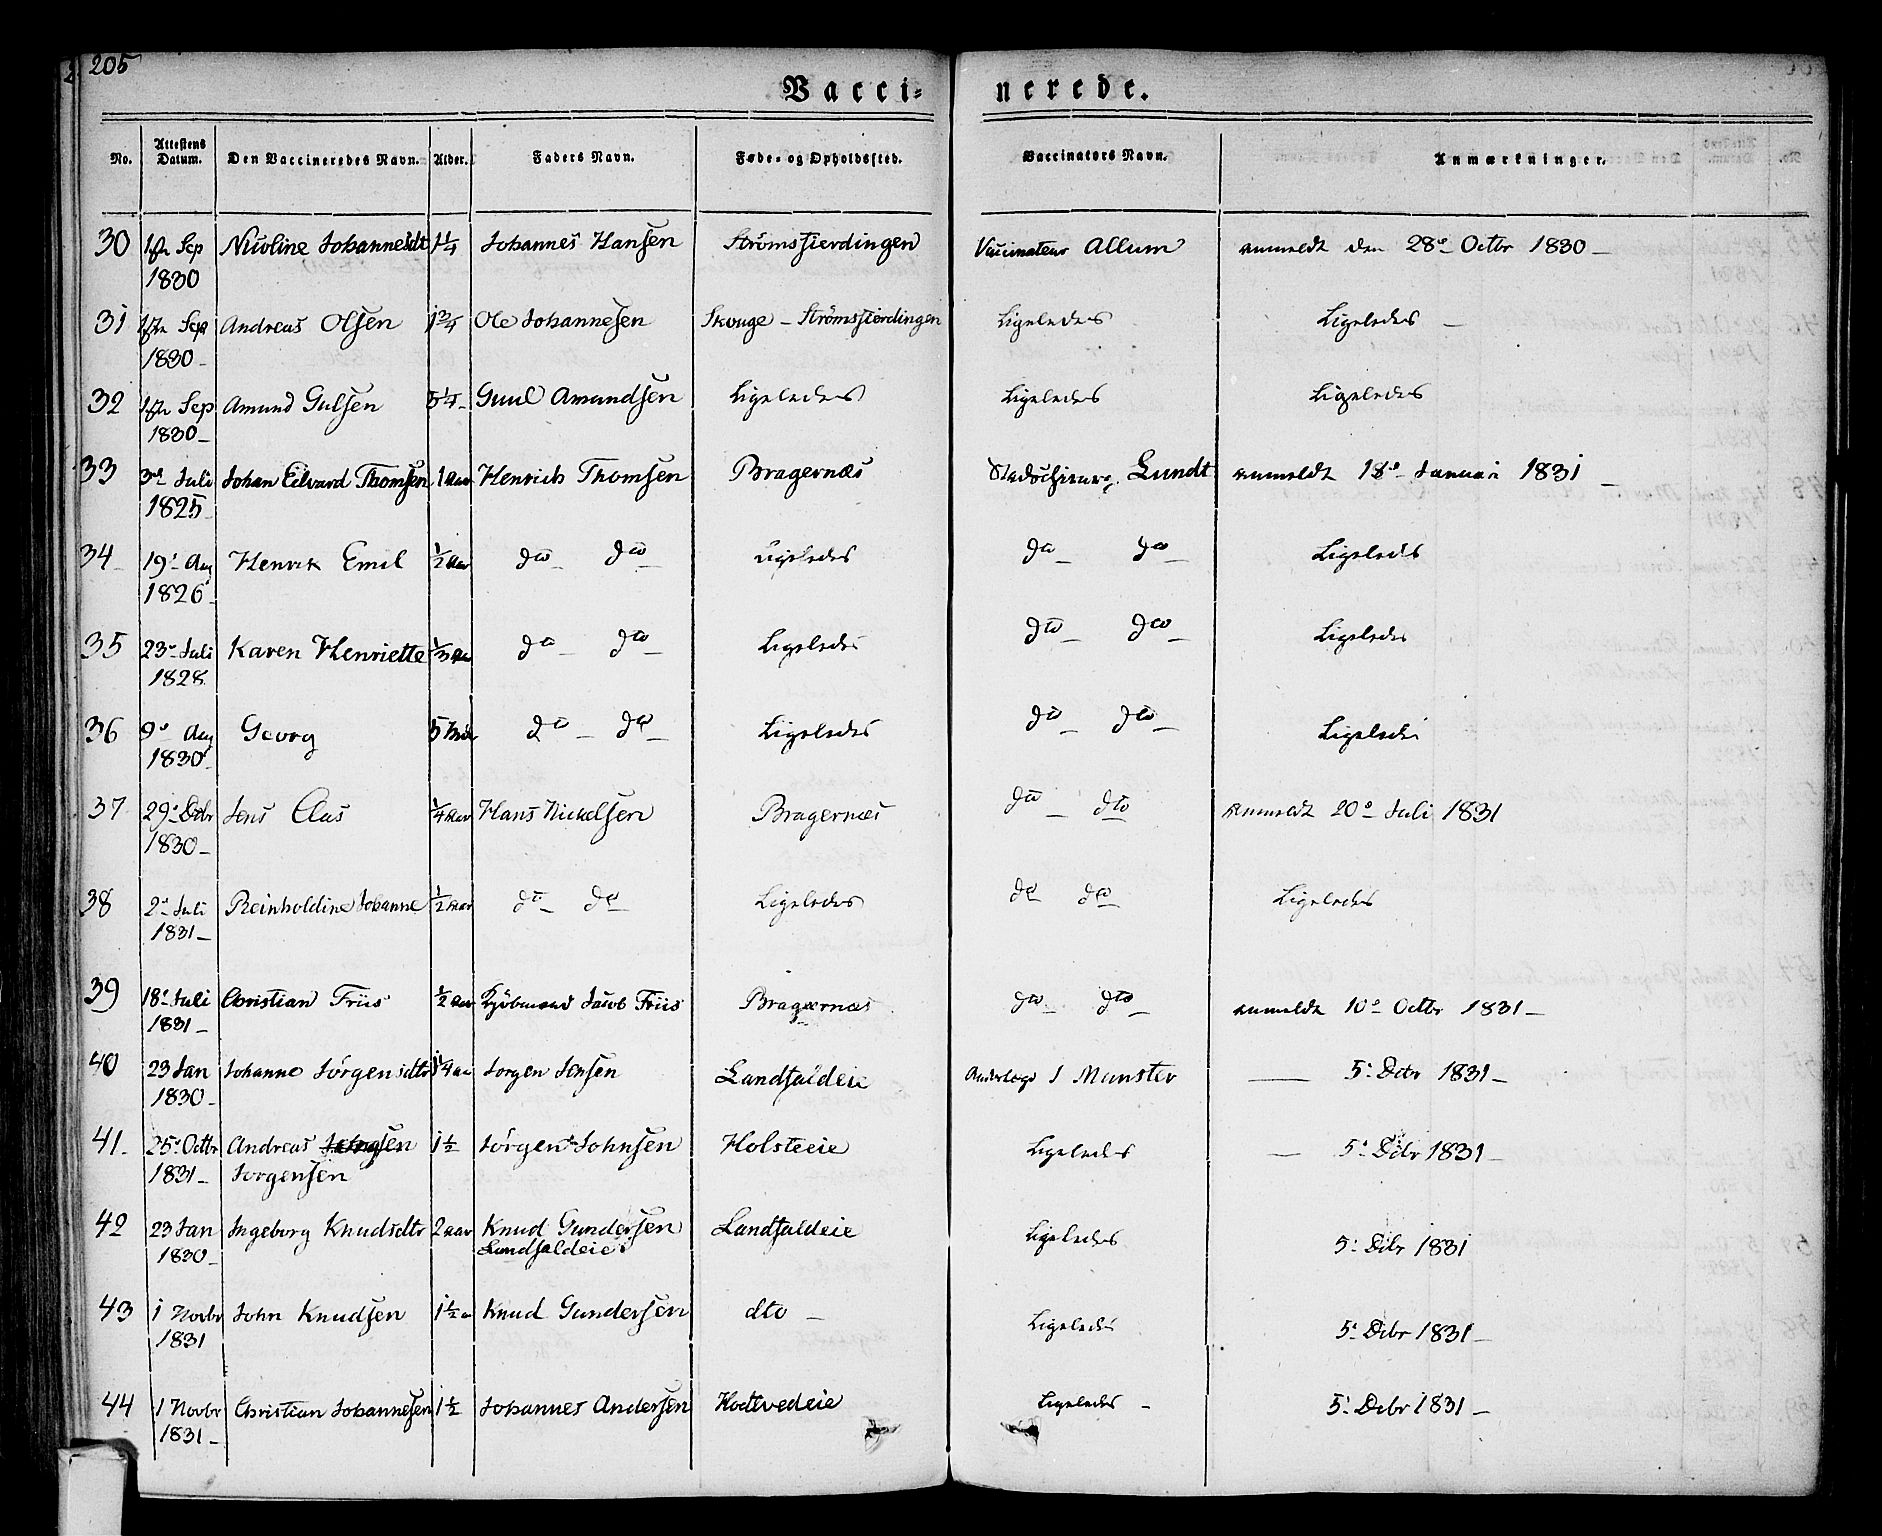 205
Vacci- nerede.
No. Attestens Datum. Den Vaccineredes Navn. Alder. Faders Navn. Føde- og Opholdssted. Vaccinators Navn. Anmærkninger.
30 Sep Nicoline Johannesdt 1 1/4 Johannes Hansen Strömsfierdingen Vaccinateur Allum anmeldt den 28de Octbr 1830 -
1830
31 Sep Andreas Olsen 1 3/4 Ole Johannesen Skouge - Strömsfierdingen Ligeledes Ligeledes -
1830 -
32 Sep Amund Gulsen 5 1/4 - Guul Amundsen Ligeledes Ligeledes Ligeledes
1830 -
33 3de Juli Johan Edvard Thomsen 1 Aar Henrich Thomsen Bragernæs Lundt anmeldt 18de Januari 1831 -
1825
34 - 19 Aug Henrik Emil 1/2 Aar do do Ligeledes do do Ligeledes
1826 -
35 23de Juli Karen Henriette 1/3 Aar do - dto Ligeledes dto dto Ligeledes
1828
36 9de Aug Georg 5 do - do Ligeledes do dto Ligeledes
1830 -
37 29de Dcbr Jens Clas 1/4 Aar Hans Nickelsen Bragernæs do dto anmeldt 20de Juli 1831
1830 -
38 2de Juli Reinholdine Johanne 1/2 Aar do do Ligeledes do do Ligeledes
1831 -
39 18de Juli Christian Friis 1/2 Aar Kjöbmand Jacob Friis Bragernæs dto dto anmeldt 10de Octbr 1831 -
1831 -
40 23 Jan Johanne Jörgensdtr 1 1/4 Jorgen Jensen Landfaldeie J Munster — 5 Dcbr 1831 -
1830 -
41 - 25 Octbr Andreas 1 1/2 Jörgen Johnsen Holsteeie Ligeledes — 5 Dcbr 1831 -
1831 - Jorgensen
42 23 Jan Ingeborg Knudsdtr 2 aar Knud Gundersen Landfaldeie Ligeledes 5 Dcbr 1831
1830 - Landfaldeie
43 1 Novbr John Knudsen 1 1/2 Knud Gundersen dto - Ligeledes 5 Dcbr 1831 -
1831
44 1 Novbr Christian Johannesen 1 1/2 Johannes Andersen Hodtvedeie Ligeledes - 5 Dcbr 1831 -
1831 -